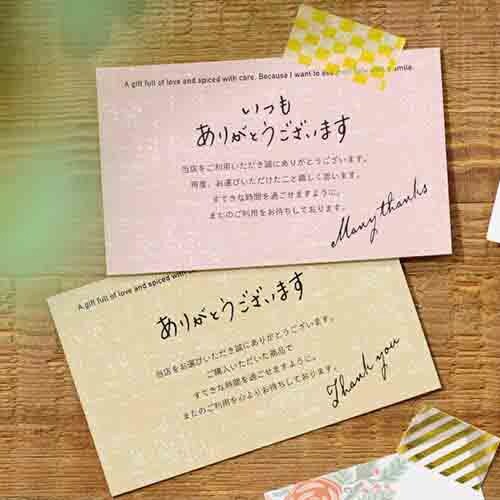 A gift full of love and spiced with care. Because I want to see your
smile.
いつも
ありがとうございます
当店をご利用いただき誠にありがとうございます。
再度、お選びいただけたこと嬉しく思います。
すてきな時間を過ごせますように。
またのご利用をお待ちしております。
Many thanks
A gift full of love and spiced with
ありがとうございます
当店をお選びいただき誠にありがとうございます。
ご購入いただいた商品で
すてきな時間を過ごせますように。
またのご利用を心よりお待ちしております。
Thank you